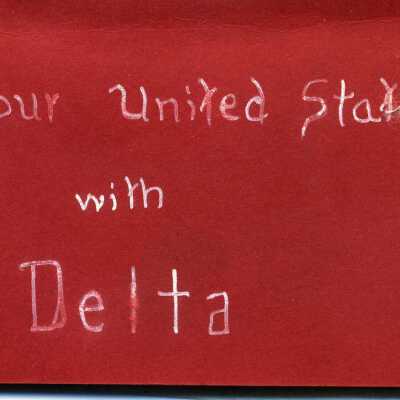 our United Stat
with
Delta